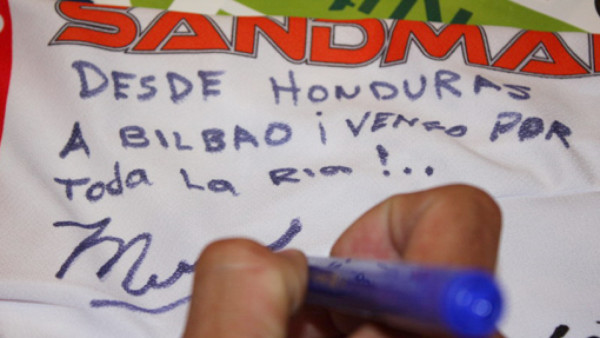 SANDMA
DESDE HONDURAS
A BILBAO ¡VENGO POR
Toda La Ria!...